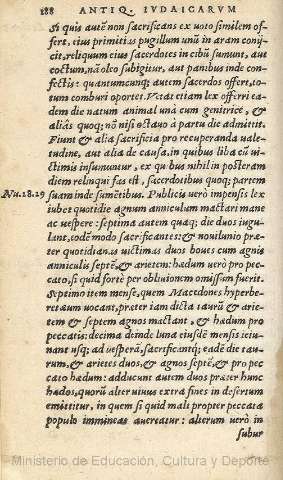 188 ANTIQ. IVDAICARVM
Si quis autē non sacrificans ex uoto similem of-
fert, eius primitias pugillum unū in aram conij-
cit, reliquum eius sacerdotes in cibū sumunt, aut
coctum, nā oleo subigitur, aut panibus inde con-
fectis: quantumcunq; autem sacerdos offert, to-
tum comburi oportet. Vetat etiam lex offerri ea-
dem die natum animal unà cum genitrice, &
aliâs quoq; nō nisi octauo à partu die admittit.
Fiunt & alia sacrificia pro recuperanda uale-
tudine, aut alia de causa, in quibus liba cū ui-
ctimis insumuntur, ex quibus nihil in posteram
diem relinqui fas est, sacerdotibus quoq; partem
Nu.18.19 suam inde sumētibus. Publicis uerò impensis lex
iubet quotidie agnum anniculum mactari mane
ac uespere: septima autem quaq; die duos iugu-
lant, eodē modo sacrificantes: & nouilunio præ-
ter quotidianas uictimas duos boues cum agnis
anniculis septē, & arietem: hædum uerò pro pec-
cato, si quid fortè per obliuionem omissum fuerit.
Septimo item mense, quem Macedones hyperbe-
retæum uocant, præter iam dicta taurū & arie-
tem & septem agnos mactant, & hædum pro
peccatis: decima deinde luna eiusdē mensis ieiu-
nant usq; ad uesperā, sacrificantq; eadē die tau-
rum, & arietes duos, & agnos septē, & pro pec
cato hædum: adducunt autem duos præter hunc
hædos, quorū alter uiuus extra fines in desertum
emittitur, in quem si quid mali propter peccata
populo imminens auertatur: alterum uerò in
subur
Ministerio de Educación, Cultura y Deporte